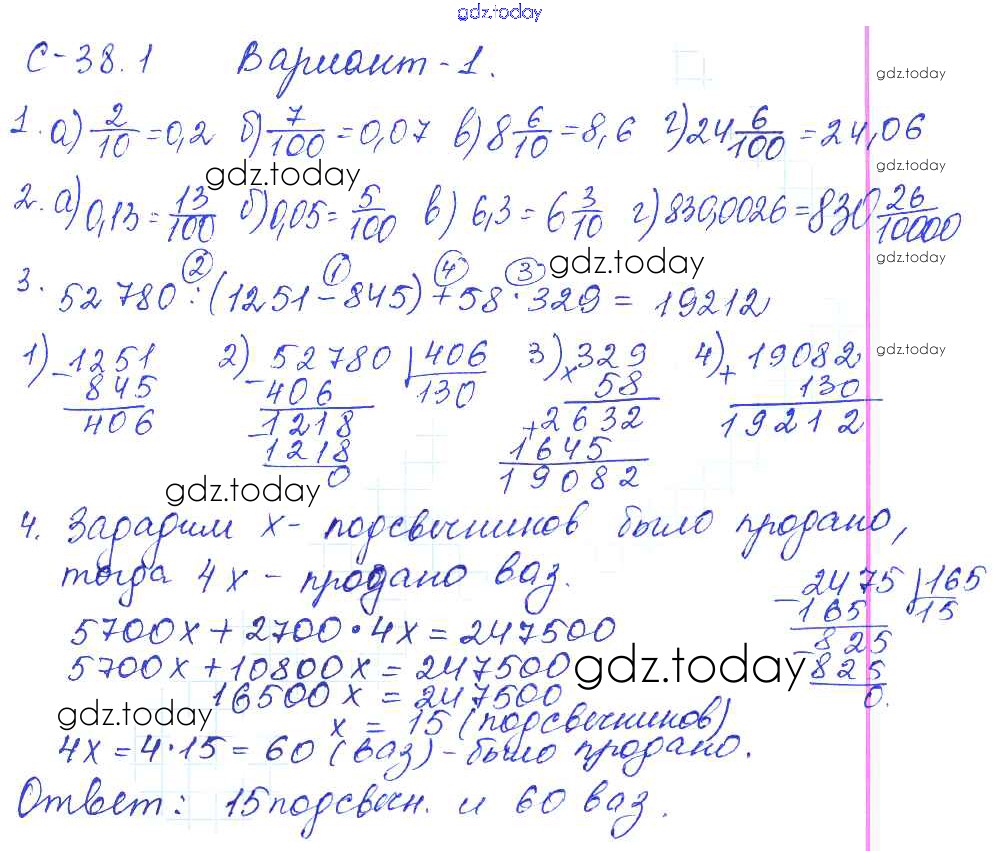 gdz.today
С-38.1 Вариант-1.
gdz.today
1. а) 2/10 = 0,2 б) 7/100 = 0,07 в) 8 6/10 = 8,6 г) 24 6/100 = 24,06
gdz.today
gdz.today
2. а) 0,13 = 13/100 б) 0,05 = 5/100 в) 6,3 = 6 3/10 г) 830,0026 = 830 26/10000
gdz.today
gdz.today
② ① ④ ③
3. 52780 : (1251 - 845) + 58 · 329 = 19212
gdz.today
1) - 1251 2) - 52780 | 406 3) × 329 4) + 19082
845 406 130 58 130
406 - 1218 + 2632 19212
1218 1645
0 19082
gdz.today
4. Зададим x - подсвечников было продано,
тогда 4x - продано ваз.
5700x + 2700 · 4x = 247500
5700x + 10800x = 247500
16500x = 247500
x = 15 (подсвечников)
4x = 4 · 15 = 60 (ваз) - было продано.
- 2475 | 165
165 15
- 825
825
0.
gdz.today
gdz.today
Ответ: 15 подсвечн. и 60 ваз.